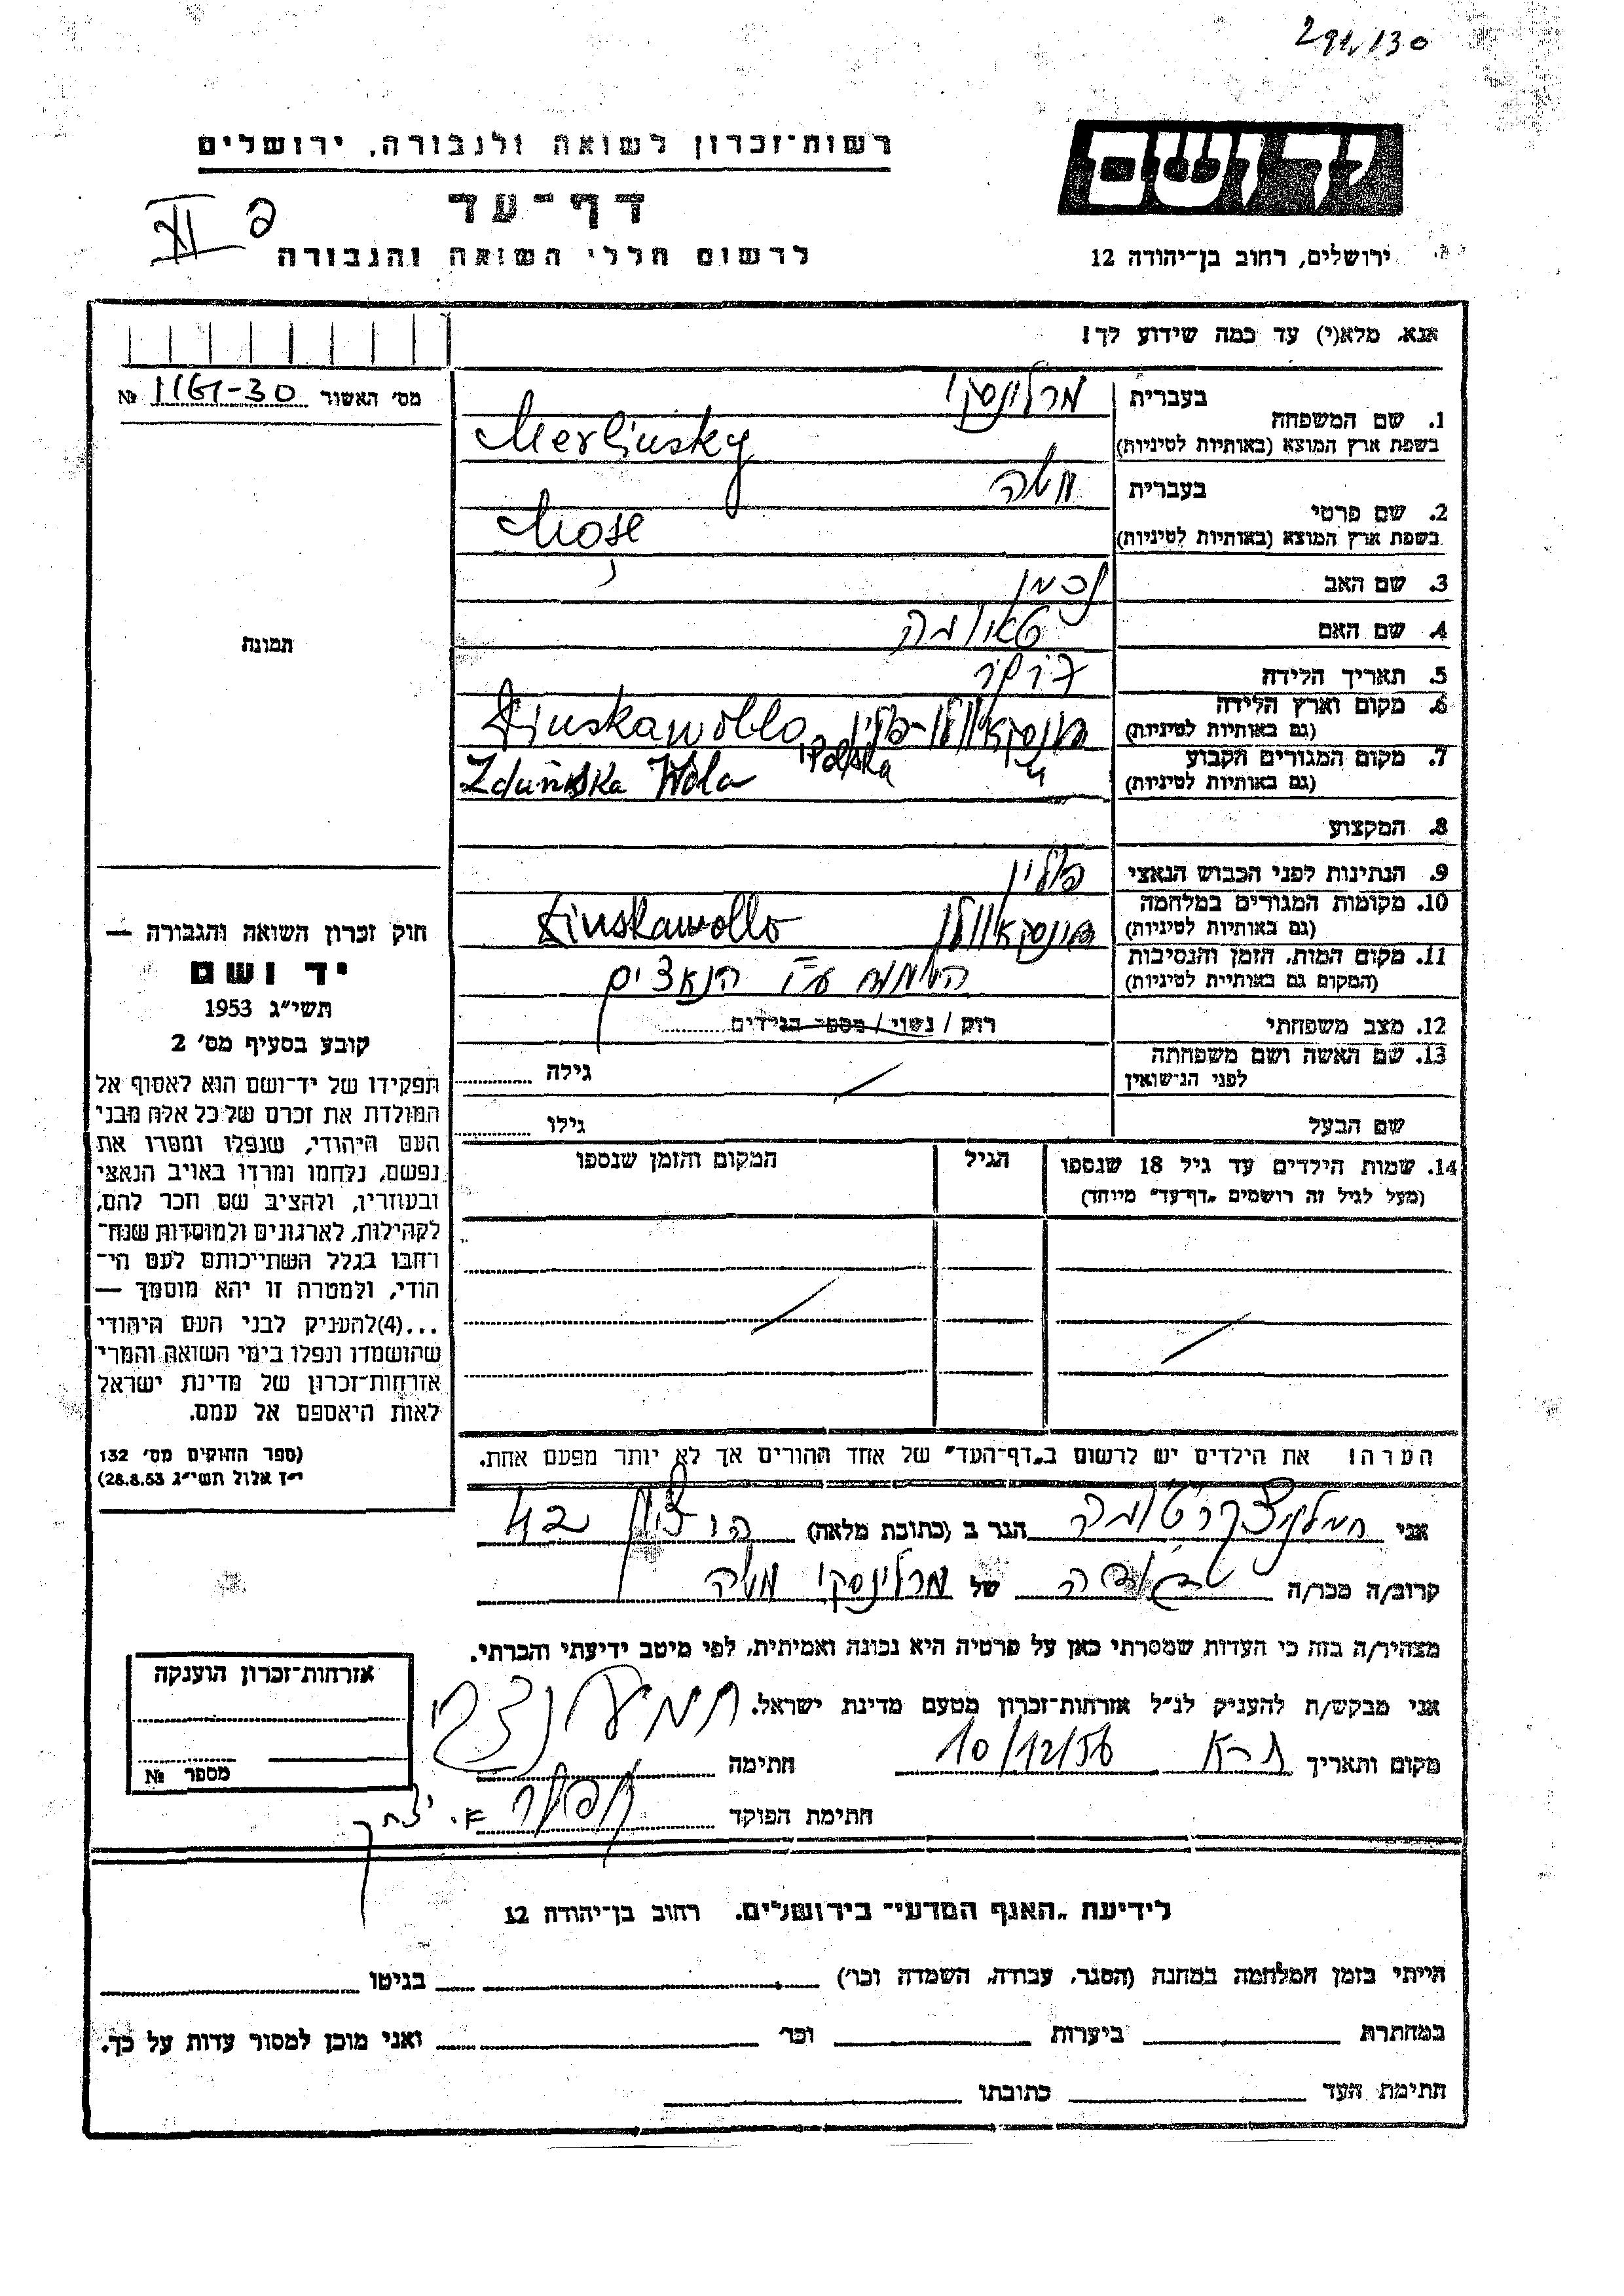 291/130
יד ושם
רשות־זכרון לשואה ולגבורה, ירושלים
דף־עד
לרשום חללי השואה והגבורה
ירושלים, רחוב בן־יהודה 12
אנא, מלא(י) עד כמה שידוע לך!
מס׳ האשור №
בעברית מרלינסקי
1. שם המשפחה
בשפת ארץ המוצא (באותיות לטיניות) Merliusky
בעברית משה
2. שם פרטי
בשפת ארץ המוצא (באותיות לטיניות) Mose
3. שם האב נחמן
4. שם האם
5. תאריך הלידה
6. מקום וארץ הלידה
(גם באותיות לטיניות) Ziuskawollo
7. מקום המגורים הקבוע Polska
(גם באותיות לטיניות) Zduńska Wola
8. המקצוע
9. הנתינות לפני הכבוש הנאצי פולין
10. מקומות המגורים במלחמה
(גם באותיות לטיניות) Ziuskawollo
11. מקום המות, הזמן והנסיבות
(המקום גם באותיות לטיניות) ע״י הנאצים
12. מצב משפחתי רוק / נשוי / מספר הילדים
13. שם האשה ושם משפחתה
לפני הנישואין גילה
שם הבעל גילו
14. שמות הילדים עד גיל 18 שנספו הגיל המקום והזמן שנספו
(מעל לגיל זה רושמים „דף־עד” מיוחד)
תמונה
חוק זכרון השואה והגבורה —
יד ושם
תשי״ג 1953
קובע בסעיף מס׳ 2
תפקידו של יד־ושם הוא לאסוף אל
המולדת את זכרם של כל אלה מבני
העם היהודי, שנפלו ומסרו את
נפשם, נלחמו ומרדו באויב הנאצי
ובעוזריו, ולהציב שם וזכר להם,
לקהילות, לארגונים ולמוסדות שנח־
רבו בגלל השתייכותם לעם הי־
הודי, ולמטרה זו יהא מוסמך —
...(4)להעניק לבני העם היהודי
שהושמדו ונפלו בימי השואה והמרי
אזרחות־זכרון של מדינת ישראל
לאות היאספם אל עמם.
(ספר החוקים מס׳ 132
י״ז אלול תשי״ג 28.8.53)
הערה! את הילדים יש לרשום ב„דף־העד” של אחד ההורים אך לא יותר מפעם אחת.
אני הגר ב (כתובת מלאה) 42
קרוב/ה מכר/ה של מרלינסקי משה
מצהיר/ה בזה כי העדות שמסרתי כאן על פרטיה היא נכונה ואמיתית, לפי מיטב ידיעתי והכרתי.
אני מבקש/ת להעניק לנ״ל אזרחות־זכרון מטעם מדינת ישראל.
מקום ותאריך 10/12/56 חתימה
חתימת הפוקד
אזרחות־זכרון הוענקה
מספר №
לידיעת „האגף המדעי” בירושלים, רחוב בן־יהודה 12
הייתי בזמן המלחמה במחנה (הסגר, עבודה, השמדה וכו׳) בגיטו
במחתרת ביערות וכו׳ ואני מוכן למסור עדות על כך.
חתימת העד כתובתו